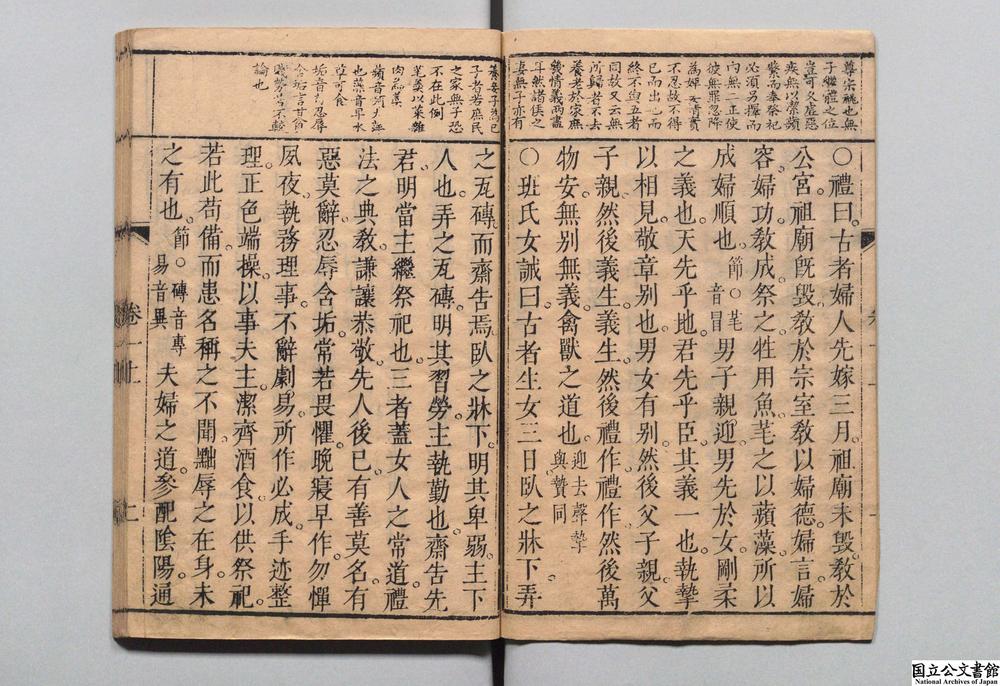 尊宗祧也無
子繼體之位
疾無以潔蘋
蘩而奉祭祀
必須另擇而
內無二正使
彼無罪忽降
不忍故不得
已而出也而
終不與五者
同故又云無
所歸者不去
養老於家無
幾情義兩盡
耳然諸侯之
妻無子亦有
○禮曰古者婦人先嫁三月祖廟未毀教於
公宮祖廟既毀教於宗室教以婦德婦言婦
容婦功教成祭之牲用魚芼之以蘋藻所以
成婦順也節○芼音冒男子親迎男先於女剛柔
之義也天先乎地君先乎臣其義一也執摯
以相見敬章別也男女有別然後父子親父
子親然後義生義生然後禮作禮作然後萬
物安無別無義禽獸之道也迎去聲摯與贄同
○班氏女誡曰古者生女三日臥之牀下弄
養妾子為己
子者若庶民
之家無子恐
不在此例
芼羹以菜雜
肉為羹
草可食
論也
之瓦磚而齋告焉臥之牀下明其卑弱主下
人也弄之瓦磚明其習勞主執勤也齋告先
君明當主繼祭祀也三者蓋女人之常道禮
法之典教謙讓恭敬先人後己有善莫名有
惡莫辭忍辱含垢常若畏懼晚寢早作勿憚
夙夜執務理事不辭劇易所作必成手迹整
理正色端操以事夫主潔齊酒食以供祭祀
若此苟備而患名稱之不聞黜辱之在身未
之有也節○磚音專易音異夫婦之道參配陰陽通
卷一上
国立公文書館
National Archives of Japan